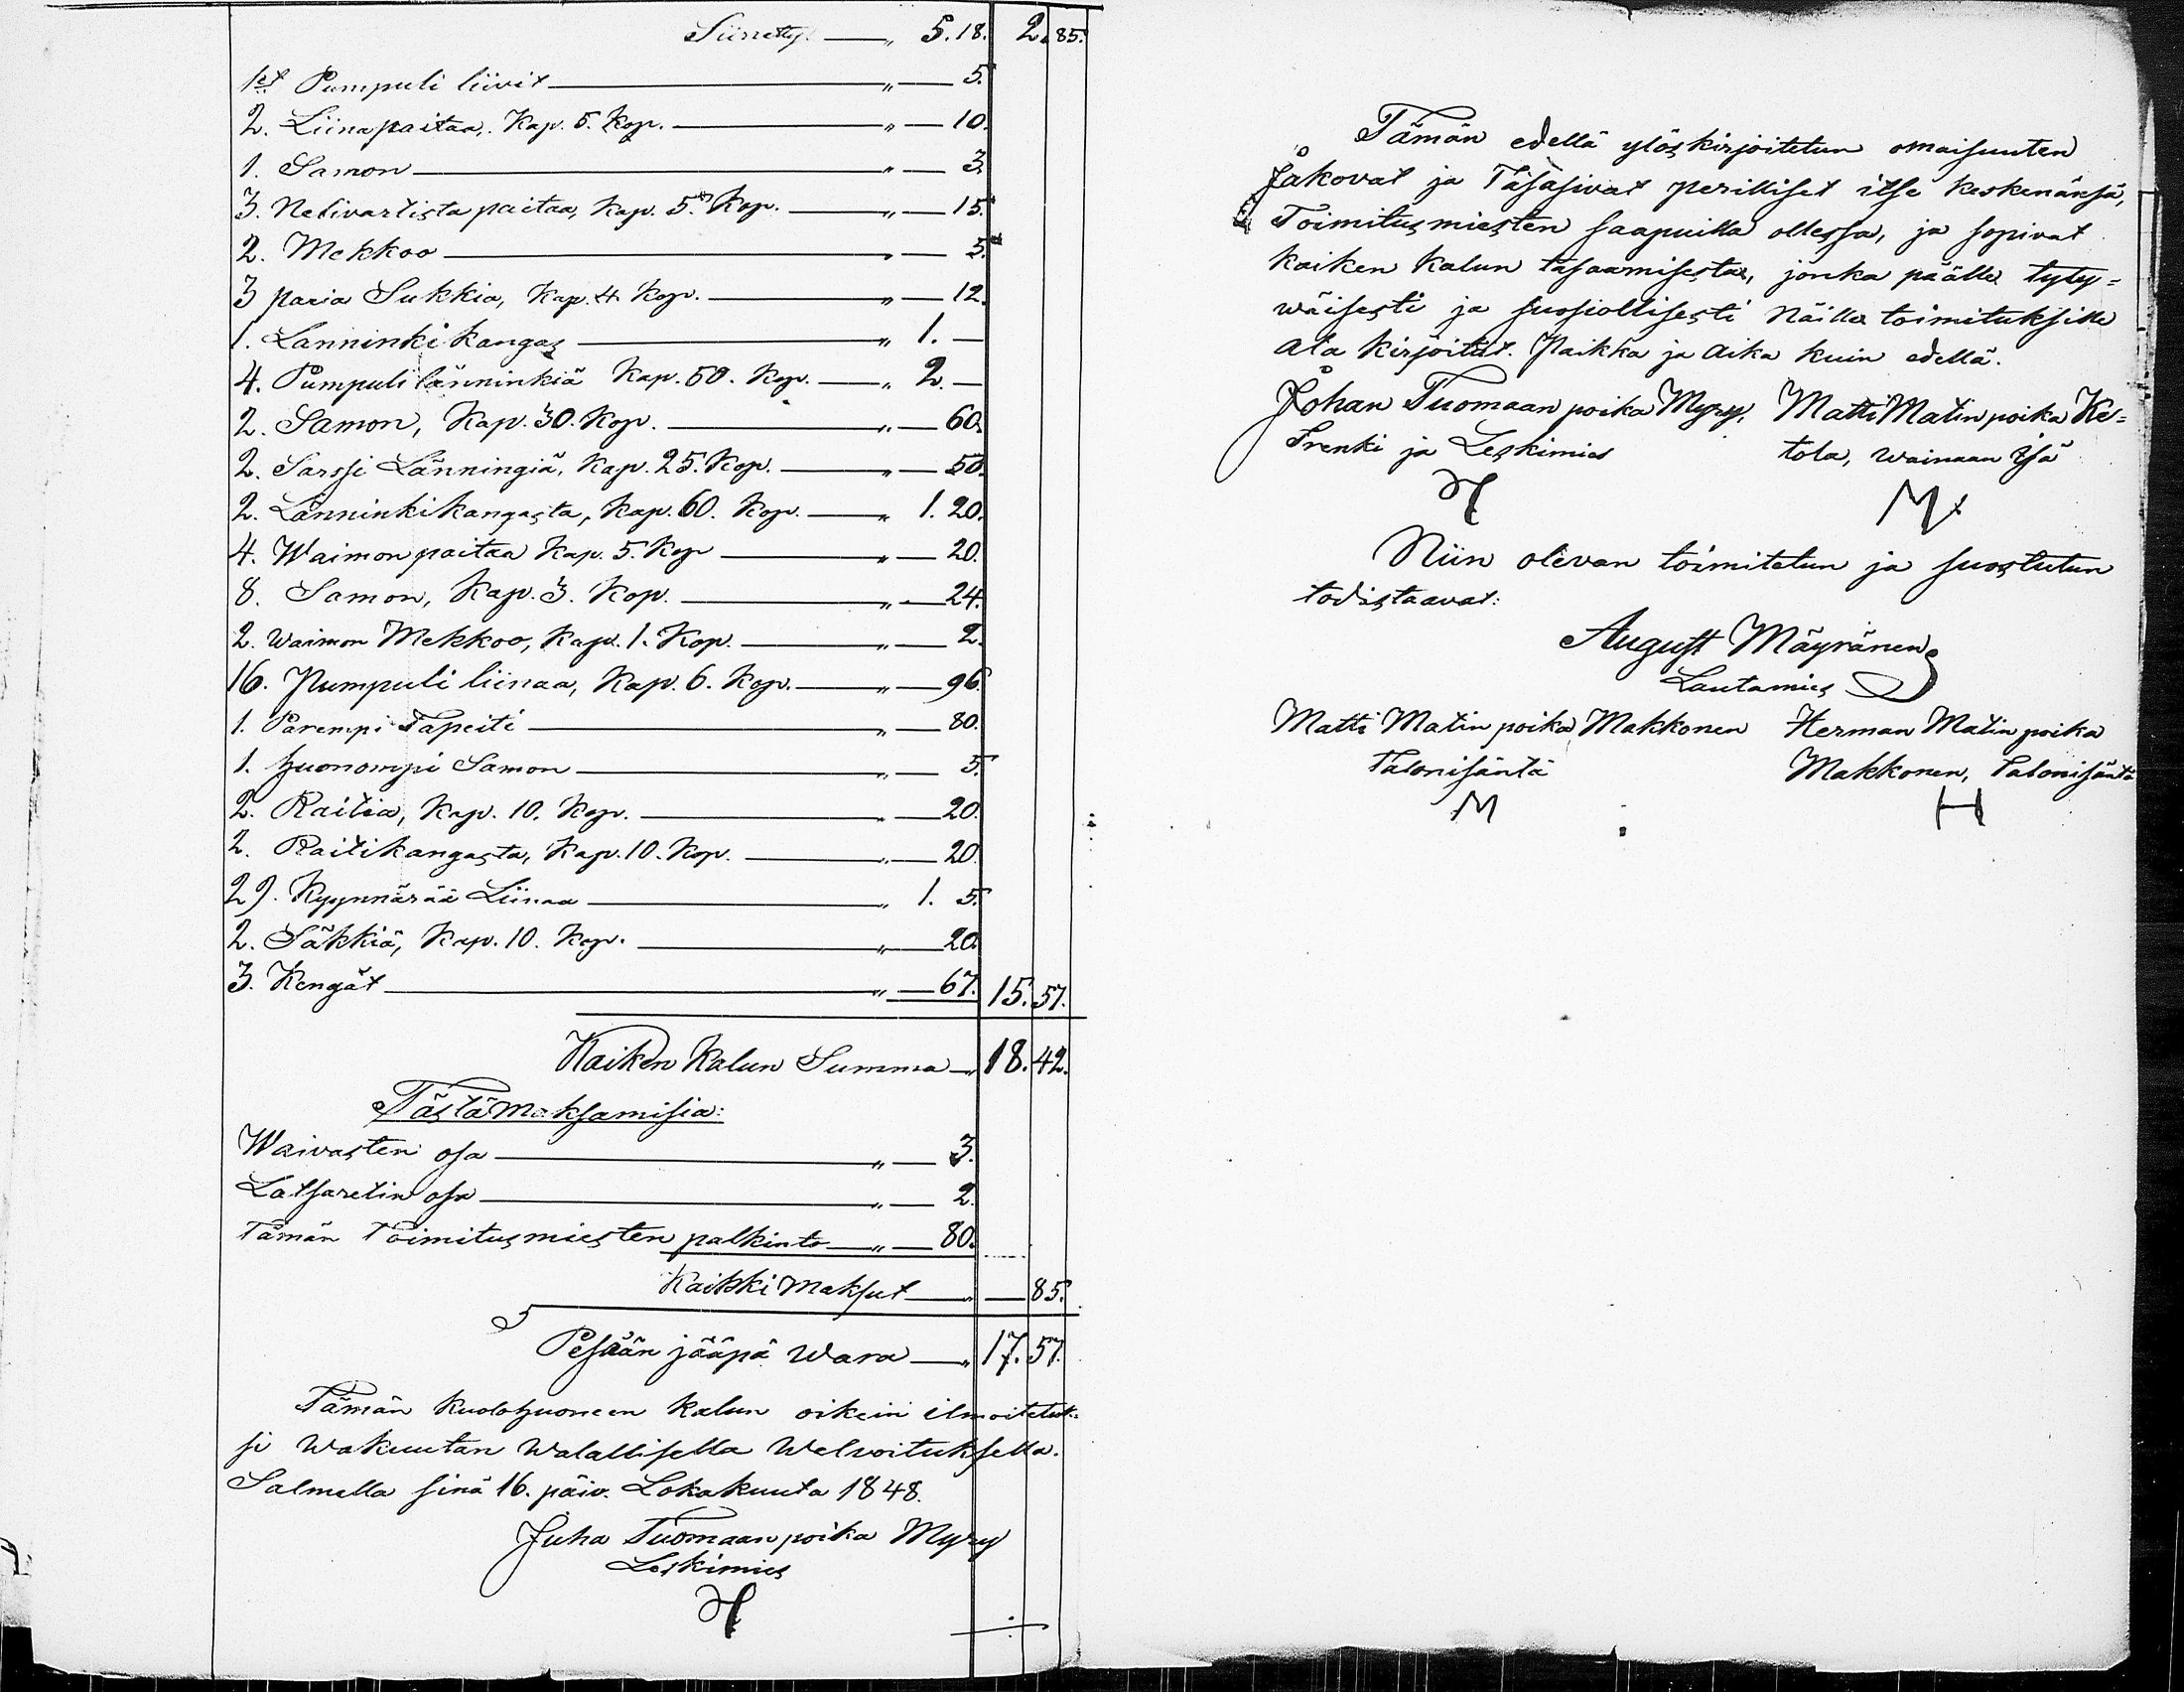 Siirretty. — „ 5.18. 2. 85.
1et Pumpuli liivit — „ — 5.
2. Liinapaitaa, Kap. 5. Kop. — „ — 10.
1. Samon — „ — 3.
3. Netivartista paitaa, Kap. 5. Kop. — „ — 15.
2. Mekkoo — „ — 5.
3 paria Sukkia, Kap. 4 Kop. — „ — 12.
1. Lanninki kangas — „ 1. —
4. Pumpuli länninkiä Kap. 50. Kop. — „ 2. —
2. Samon, Kap. 30. Kop. — „ — 60.
2. Sarssi Länningiä, Kap. 25. Kop. — „ — 50.
2. Länninkikangasta, Kap. 60. Kop. — „ 1. 20.
4. Waimon paitaa Kap. 5. Kop — „ — 20.
8. Samon, Kap. 3. Kop. — „ — 24.
2. Waimon Mekkoo, Kap. 1. Kop. — „ — 2.
16. Pumpuli liinaa, Kap. 6. Kop. — „ — 96.
1. Parempi Tapeiti — „ — 80.
1. huonompi Samon — „ — 5.
2. Raitia, Kap. 10. Kop. — „ — 20.
2. Raitikangasta, Kap. 10. Kop. — „ — 20.
29. Kyynnärää Liinaa — „ 1. 5.
2. Säkkiä, Kap. 10. Kop. — „ — 20.
3. Kengät — „ — 67. 15. 57.
Kaiken Kalun Summa — „ 18. 42.
Tästä maksamisia:
Waivasten osa — „ — 3.
Latsaretin osa — „ — 2.
Tämän Toimitusmiesten palkinto — „ — 80.
Kaikki Maksut — „ — 85.
Pesään jääpä Wara — „ 17. 57.
Tämän Kuolohuoneen Kalun oikein ilmoitetuk=
si Wakuutan Walallisella Welvoituksella.
Salmella sinä 16. päiv. Lokakuuta 1848.
Juha Tuomaan poika Myry
Leskimies
Tämän edellä ylöskirjoitetun omaisuuten
Jakovat ja Tasasivat perilliset itse keskenänsä,
Toimitusmiesten saapuilla ollessa, ja sopivat
kaiken kalun tasaamisesta, jonka päälle tyty=
wäisesti ja suosiollisesti Näille toimituksille
ala kirjoitat. Paikka ja Aika kuin edellä.
Johan Tuomaan poika Myry, Matti Matin poika Ke=
Trenki ja Leskimies tola, Wainaan isä
M
Niin olevan toimitetun ja suostutun
todistaavat:
August Mäyränen
Lautamies
Matti Matin poika Makkonen Herman Matin poika
Talonisäntä Makkonen, Talonisäntä
M H